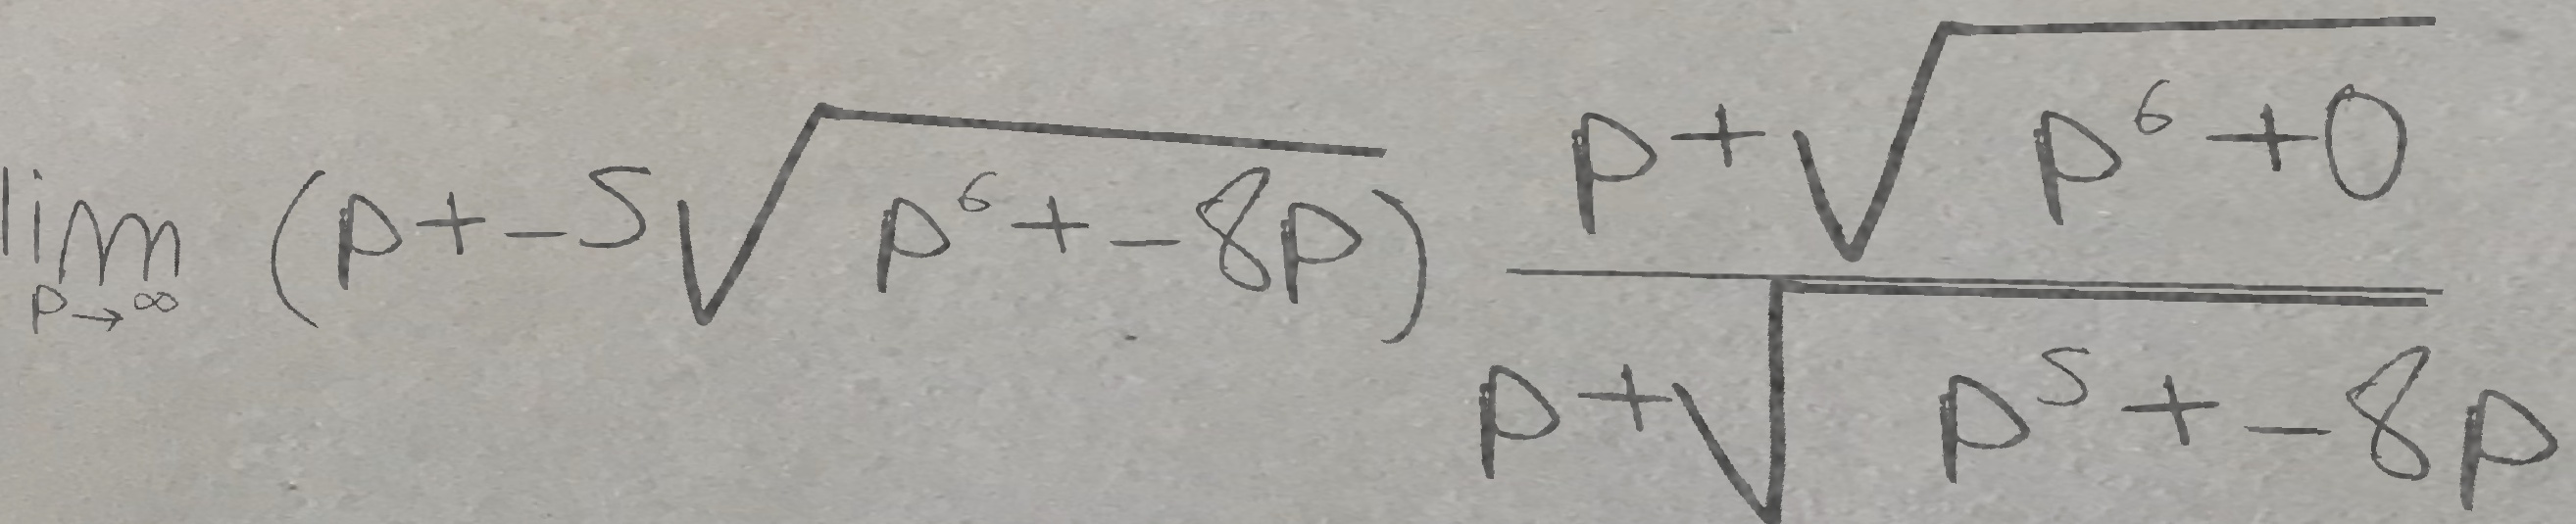 \lim_{p \to \infty} (p + -5\sqrt{p^6 + -8p}) \frac{p + \sqrt{p^6 + 0}}{p + \sqrt{p^5 + -8p}}